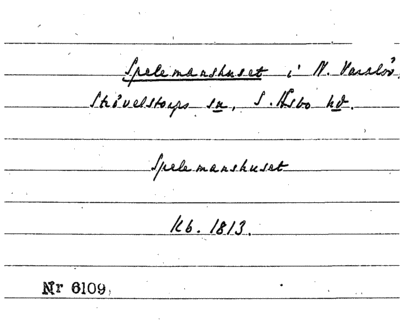 Spelemanshuset i N. Varalöv,
Strövelstorps sn, S. Åsbo hd.
Spelemanshuset
Kb. 1813.
Nr 6109